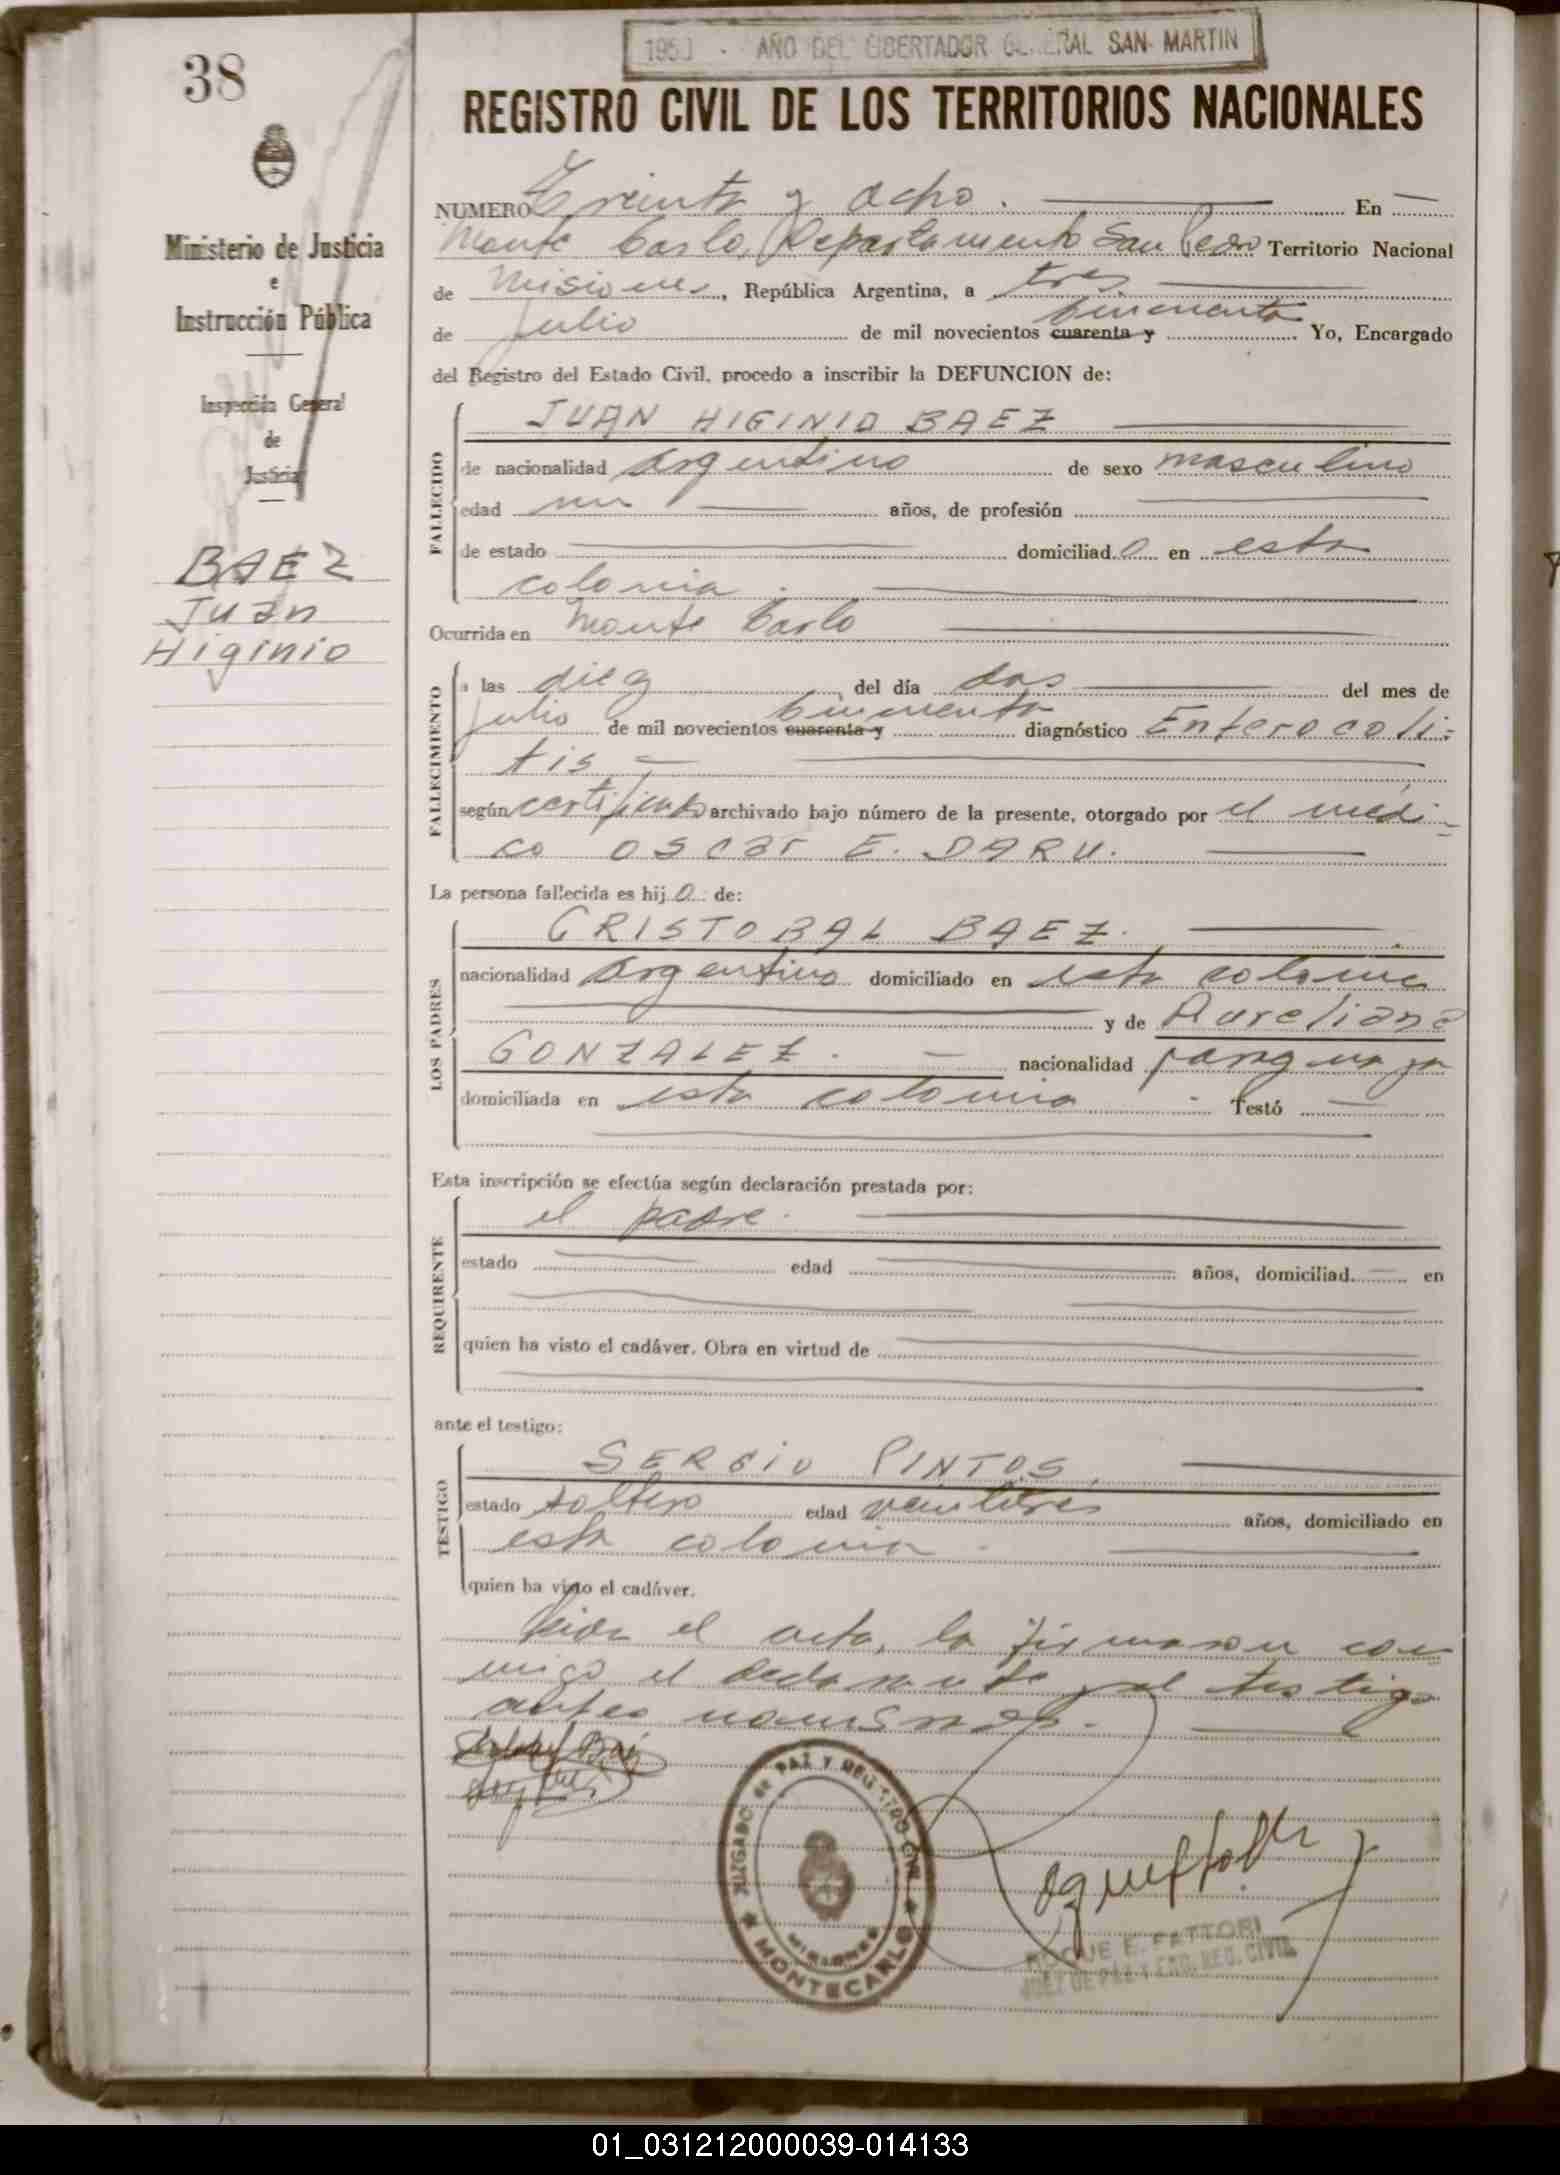 1950 - AÑO DEL LIBERTADOR GENERAL SAN MARTIN
38
REGISTRO CIVIL DE LOS TERRITORIOS NACIONALES
Ministerio de Justicia
e
Instrucción Pública
Inspección General
de
Justicia
BAEZ
Juan
Higinio
NUMERO Treinta y ocho. En
Monte Carlo, Departamento San Pedro Territorio Nacional
de Misiones, República Argentina, a tres
de julio de mil novecientos cuarenta y cincuenta Yo, Encargado
del Registro del Estado Civil, procedo a inscribir la DEFUNCION de:
FALLECIDO
JUAN HIGINIO BAEZ
de nacionalidad argentino de sexo masculino
edad un años, de profesión
de estado domiciliad o en esta
colonia.
Ocurrida en Monte Carlo
FALLECIMIENTO
a las diez del día dos del mes de
julio de mil novecientos cuarenta y cincuenta diagnóstico Enterocoli-
tis
según certificado archivado bajo número de la presente, otorgado por el médi-
co OSCAR E. DARU.
La persona fallecida es hij o de:
LOS PADRES
CRISTOBAL BAEZ.
nacionalidad argentino domiciliado en esta colonia
y de Aureliana
GONZALEZ. nacionalidad paraguaya
domiciliada en esta colonia Testó
Esta inscripción se efectúa según declaración prestada por:
REQUIRENTE
el padre.
estado edad años, domiciliad en
quien ha visto el cadáver. Obra en virtud de
ante el testigo:
TESTIGO
SERGIO PINTOS,
estado soltero edad veintitres años, domiciliado en
esta colonia.
quien ha visto el cadáver.
Leida el acta, la firmaron con-
migo el declarante y el testigo
antes nombrados.
JUZGADO DE PAZ Y REGISTRO CIVIL
MISIONES
MONTECARLO
ROQUE E. FATTORI
JUEZ DE PAZ Y ENC. REG. CIVIL
01_031212000039-014133